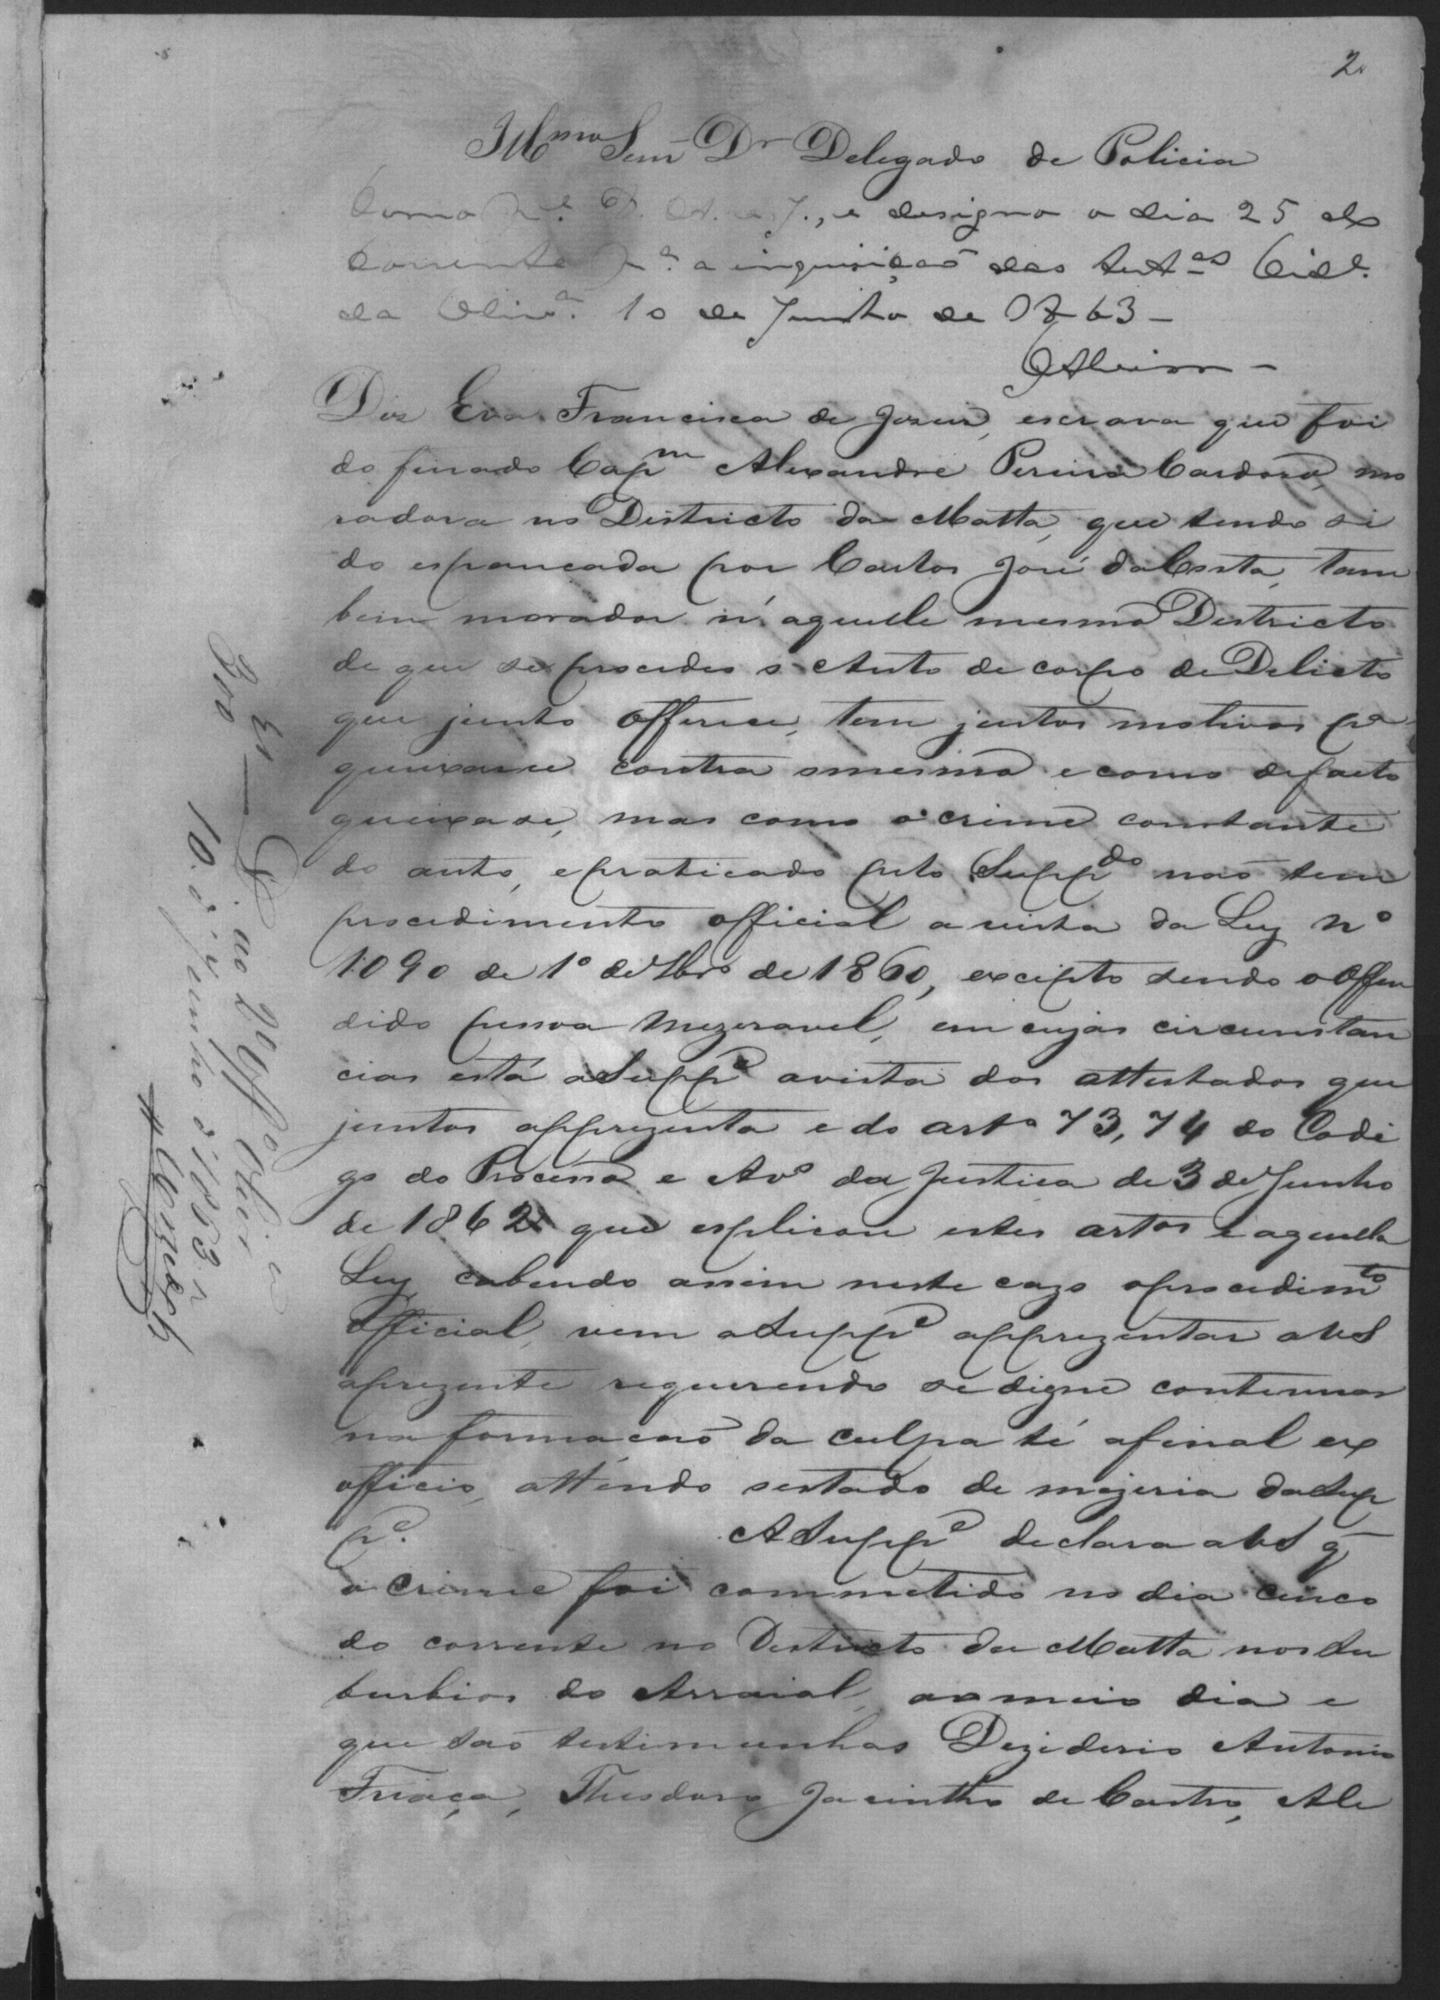 2.
Illmo Senr Dr Delegado de Policia
Como re. D. A. e J., e designo o dia 25 do
Corrente pa. a inquirição das testas Cide.
da Olivra. 10 de Junho de 1863 –
Diz Eva Francisca de Jesus, escrava que foi
do finado Capm Alexandre Pereira Cardoso, mo
radora no Districto da Matta, que tendo si
do espancada por Carlos José da Costa, tam
bem morador n'aquelle mesmo Districto
de que se procedeo o Auto de corpo de Delicto
que junto offerece, tem justos motivos pa
queixarse contra omesmo e como defacto
queixase, mas como o crime constante
do auto, epraticado pelo Suppdo não tem
procedimento official a vista da Ley no
1090 de 1o de 7bro de 1860, excepto sendo o Offen
dido pessoa mizeravel, em cujas circumstan
cias está aSuppe avista dos attestados que
juntos apprezenta e do arto 73, 74 do Codi
go do Processo e Avo da Justica de 3 de Junho
de 1862 que explicou estes artos e aquella
Ley, cabendo assim neste cazo oprocedimto
official, vem aSuppe apprezentar aVS
aprezente requerendo se digne continuar
na formacaõ da culpa té afinal ex
officio, attendo oestado de mizeria daSup
pe. ASuppe declara aVS q
o crime foi commetido no dia cinco
do corrente no Destricto da Matta nosSu
burbios do Arraial, aomeio dia e
que saõ testimunhas Deziderio Antonio
Friaça, Theodoro Jacintho de Castro, Ale
D. ao 2o Offo Olivra
10 de Junho de 1863